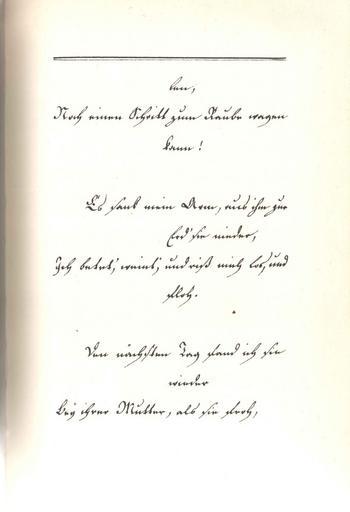 len,
Noch einen Schritt zum Raube wagen
kann!
Es sank mein Arm, aus ihm zur
Erd' sie nieder,
Ich betet', weint', und riß mich los, und
floh.
Den nächsten Tag fand ich sie
wieder
Bey ihrer Mutter, als sie froh,